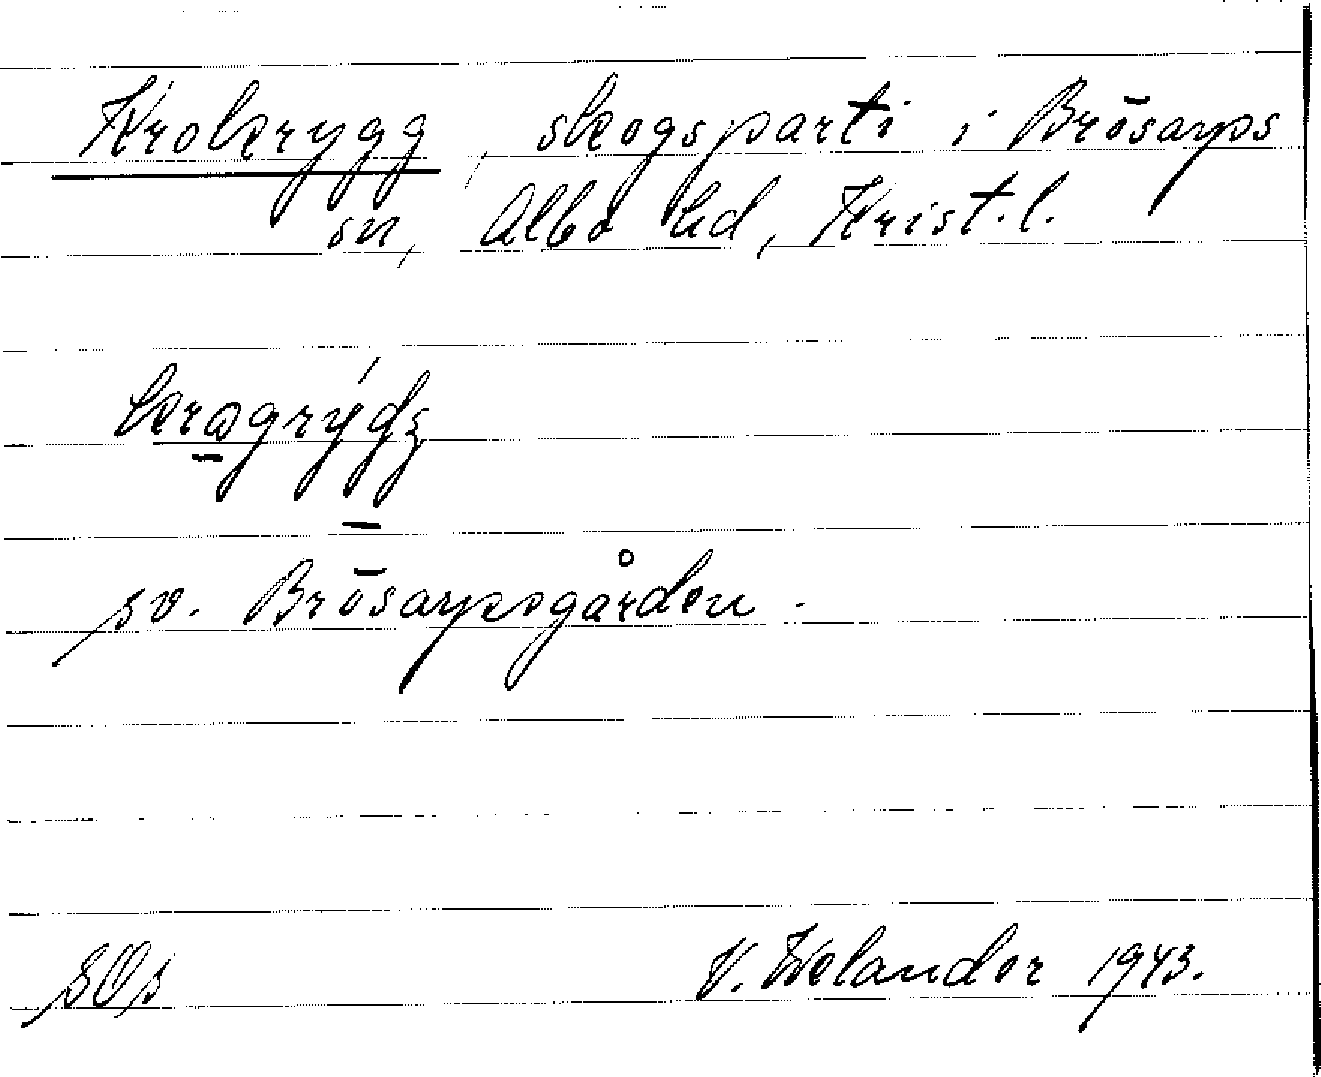 Krokrygg, skogsparti i Brösarps
sn, Albo hd, Krist.l.
sv. Brösarpsgården.
V. Welander 1943.